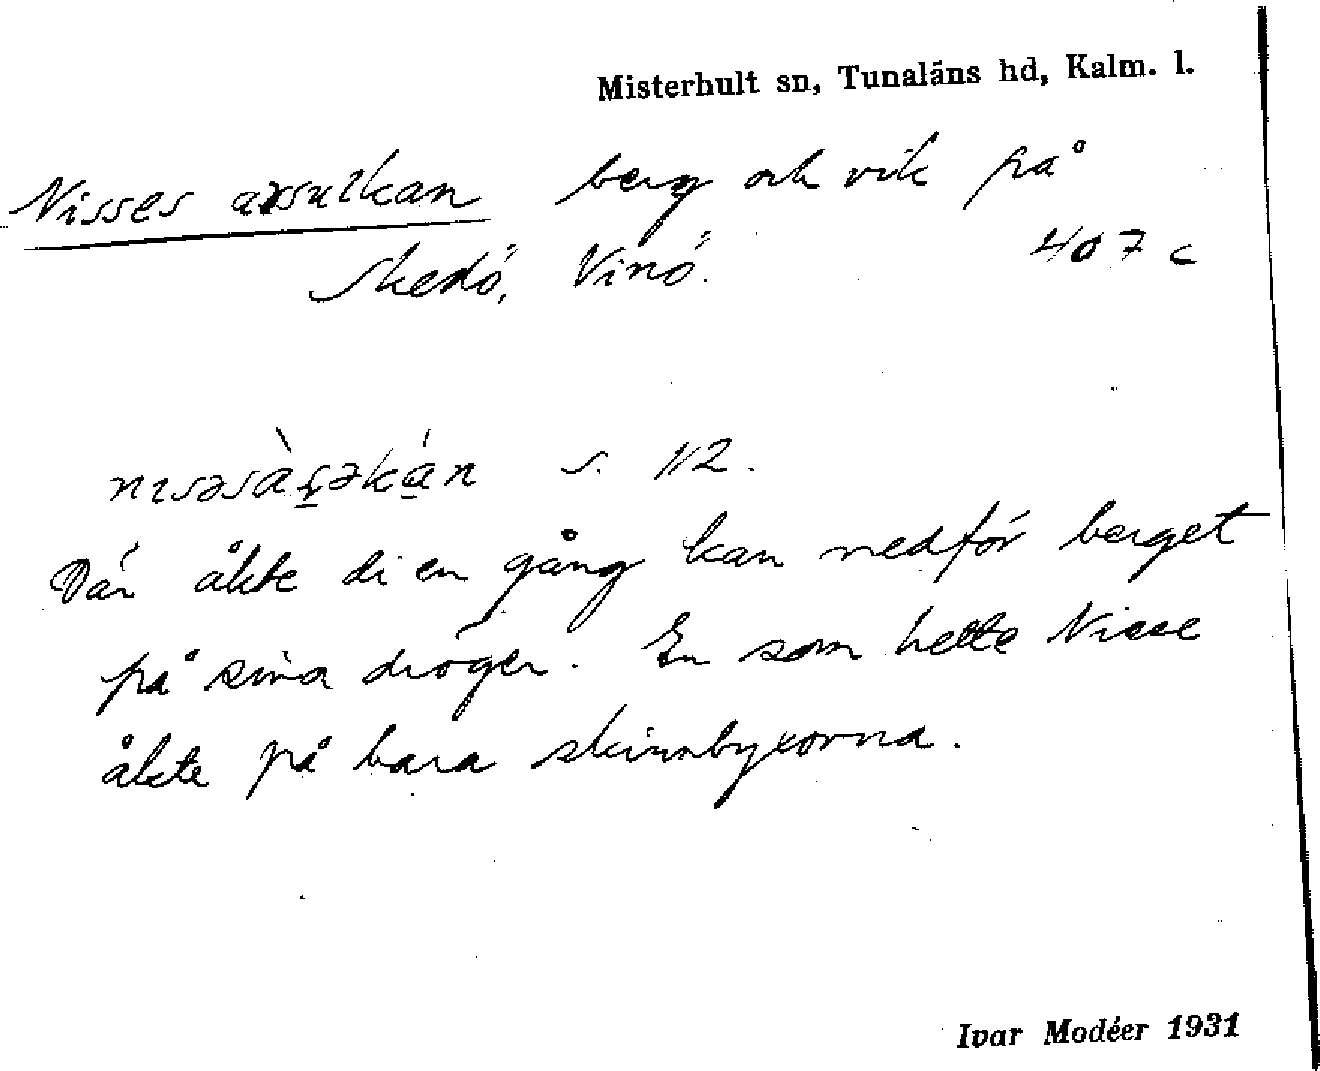 Misterhult sn, Tunaläns hd, Kalm. l.
Nisses arsulkan berg och vik på
Skedö, Vinö. 407 c
s. 112.
Där åkte di en gång kan nedför berget
på sina drögen. En som hette Nisse
åkte på bara skinnbyxorna.
Ivar Modéer 1931